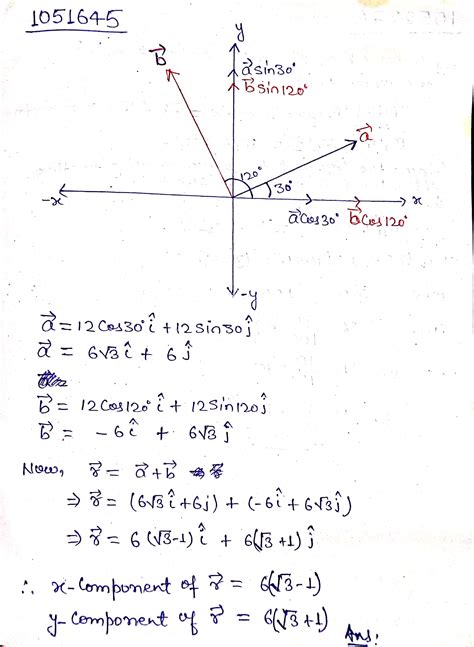 1051645
y
b⃗
a⃗ sin30°
b⃗ sin120°
a⃗
120°
30°
-x
x
a⃗cos30°
b⃗cos120°
-y
a⃗ = 12cos30° î + 12sin30 ĵ
a⃗ = 6√3 î + 6 ĵ
b⃗ = 12cos120° î + 12sin120 ĵ
b⃗ = -6 î + 6√3 ĵ
Now, r⃗ = a⃗+b⃗
⇒ r⃗ = (6√3 î + 6j) + (-6 î + 6√3 ĵ)
⇒ r⃗ = 6(√3-1) î + 6(√3+1) ĵ
∴ x-component of r⃗ = 6(√3-1)
y-component of r⃗ = 6(√3+1)
Ans: